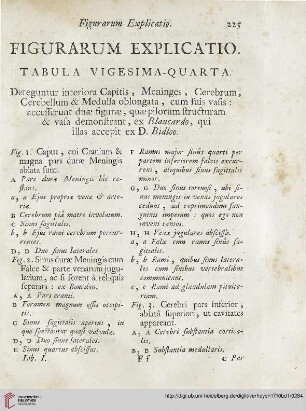 Figurarum Explicatio. 225
FIGURARUM EXPLICATIO.
TABULA VIGESIMA-QUARTA.
Deteguntur interiora Capitis, Meninges, Cerebrum,
Cerebellum & Medulla oblongata, cum suis vasis:
accesserunt duæ figuræ, quæ pilorum structuram
& vasa demonstrant, ex Blancardo, qui
illas accepit ex D. Bidloo.
Fig. 1. Caput, cui Cranium &
magna pars duræ Meningis
ablata sunt.
A Pars duræ Meningis hic re-
stans.
a, a Ejus propriæ venæ & arte-
riæ.
B Cerebrum piâ matre involutum.
C Sinus sagittalis.
b, b Ejus rami cerebrum percur-
rentes.
D, D Duo sinus laterales
Fig. 2. Sinus duræ Meningis cum
Falce & parte venarum jugu-
larium, ac si forent à reliquis
separati: ex Bonadon.
A, A Pars cranii.
B Foramen magnum ossis occipi-
tis.
C Sinus sagittalis apertus, in
quo
D, D Duo sinus laterales.
E Sinus quartus abscissus.
Lib. I.
F Ramus major sinûs quarti per
partem inferiorem falcis excur-
rens, aliquibus sinus sagittalis
G, G Duo sinus tortuosi, ubi si-
nus meningis in venas jugulares
cedunt, ad reprimendum san-
guinis impetum: quos ego non
inveni
H, H Venæ jugulares abscissæ.
a, a Falx cum ramis sinûs sa-
gittalis.
b, b Rami, quibus sinus latera-
les cum sinibus vertebralibus
communicant.
c, c Rami ad glandulam pituita-
riam.
Fig. 3. Cerebri pars inferior,
ablatâ superiori, ut cavitates
appareant.
A, A Cerebri substantia cortica-
lis.
B, B Substantia medullaris.
F f c Per